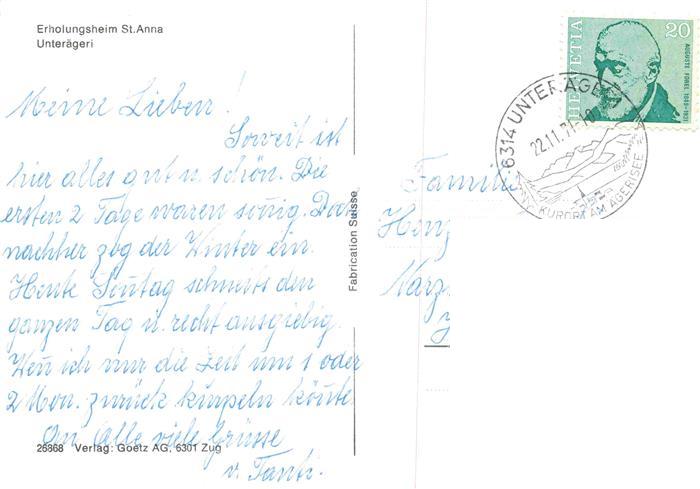 Erholungsheim St.Anna
Unterägeri
Meine Lieben!
Soweit ist
hier alles gut u. schön. Die
ersten 2 Tage waren sonig. Doch
nachher zog der Winter ein.
Heute Sontag schneits den
ganzen Tag u. recht ausgiebig.
Wen ich nur die Zeit um 1 oder
2 Mon. zurück kurpeln könte.
An Alle viele Grüsse
v. Tante.
26868 Verlag: Goetz AG, 6301 Zug
Fabrication Suisse
Famili
HELVETIA
20
AUGUSTE FOREL 1848-1931
6314 UNTERÄGERI
22.11.71-18
KURORT AM ÄGERISEE